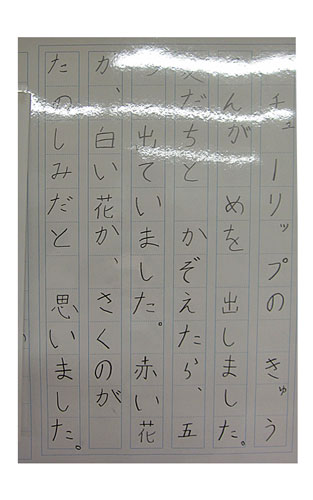 チューリップの きゅう
んが めを 出しました。
だちと かぞえたら、五
出ていました。赤い花
か、白い花か、さくのが、
たのしみだと 思いました。